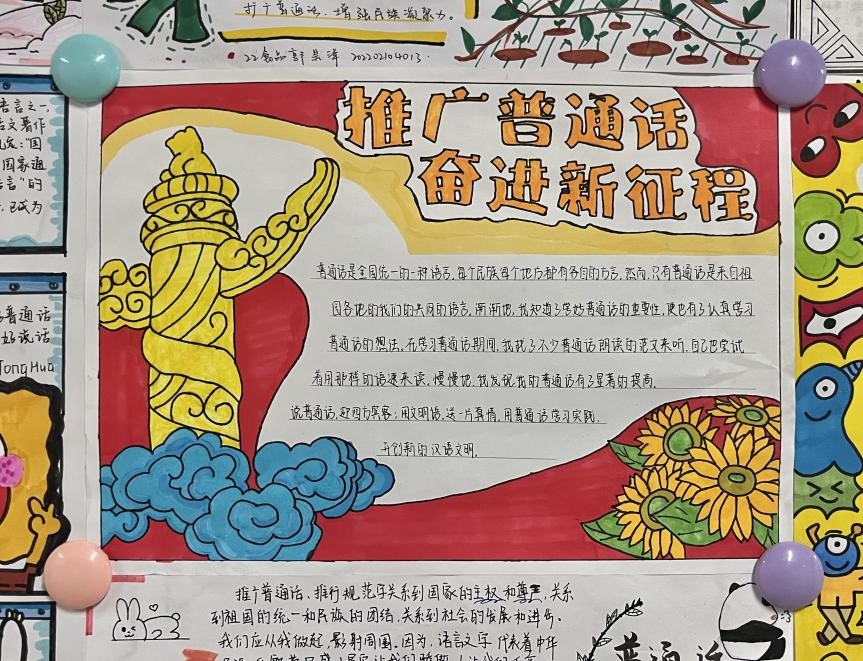 打广普通话、增强民族凝聚力。
22食品 202202104013.
言之一,
文著作
:"国
国家通
言"的
已成为
普通话
好说话
TongHua
推广普通话
奋进新征程
普通话是全国统一的一种语言,每个民族每个地方都有各自的方言,然而,只有普通话是来自祖
国各地的我们的共同的语言,渐渐地,我知道了学好普通话的重要性,便也有了认真学习
普通话的想法,在学习普通话期间,我找了不少普通话朗读的范文来听,自己也尝试
着用那样的语速来读,慢慢地,我发现我的普通话有了显著的提高.
说普通话,迎四方宾客;用文明语,送一片真情,用普通话学习实践,
开创新的汉语文明.
推广普通话、推行规范字关系到国家的主权和尊严,关系
到祖国的统一和民族的团结,关系到社会的发展和进步.
我们应从我做起,影射周围.因为,语言文字代表着中华
普通话